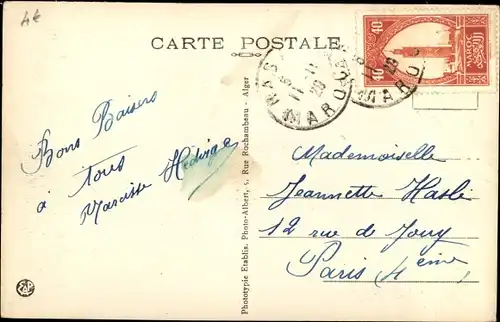 4€
CARTE POSTALE
40 40
MAROC
MAROC
MAROC
Bons Baisers
à tous
Narcisse Hedwige
Phototypie Etablis. Photo-Albert, 5, Rue Rochambeau - Alger
Mademoiselle
Jeannette Hasli
12 rue de Jouy
Paris 4 eme